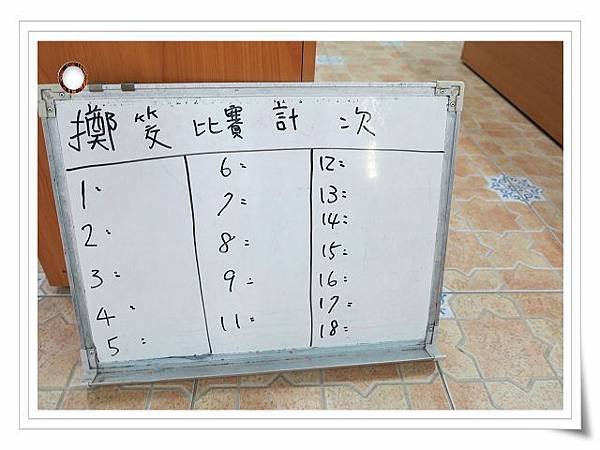 擲筊比賽計次
1:
2:
3:
4:
5:
6:
7:
8:
9:
11:
12:
13:
14:
15:
16:
17:
18: